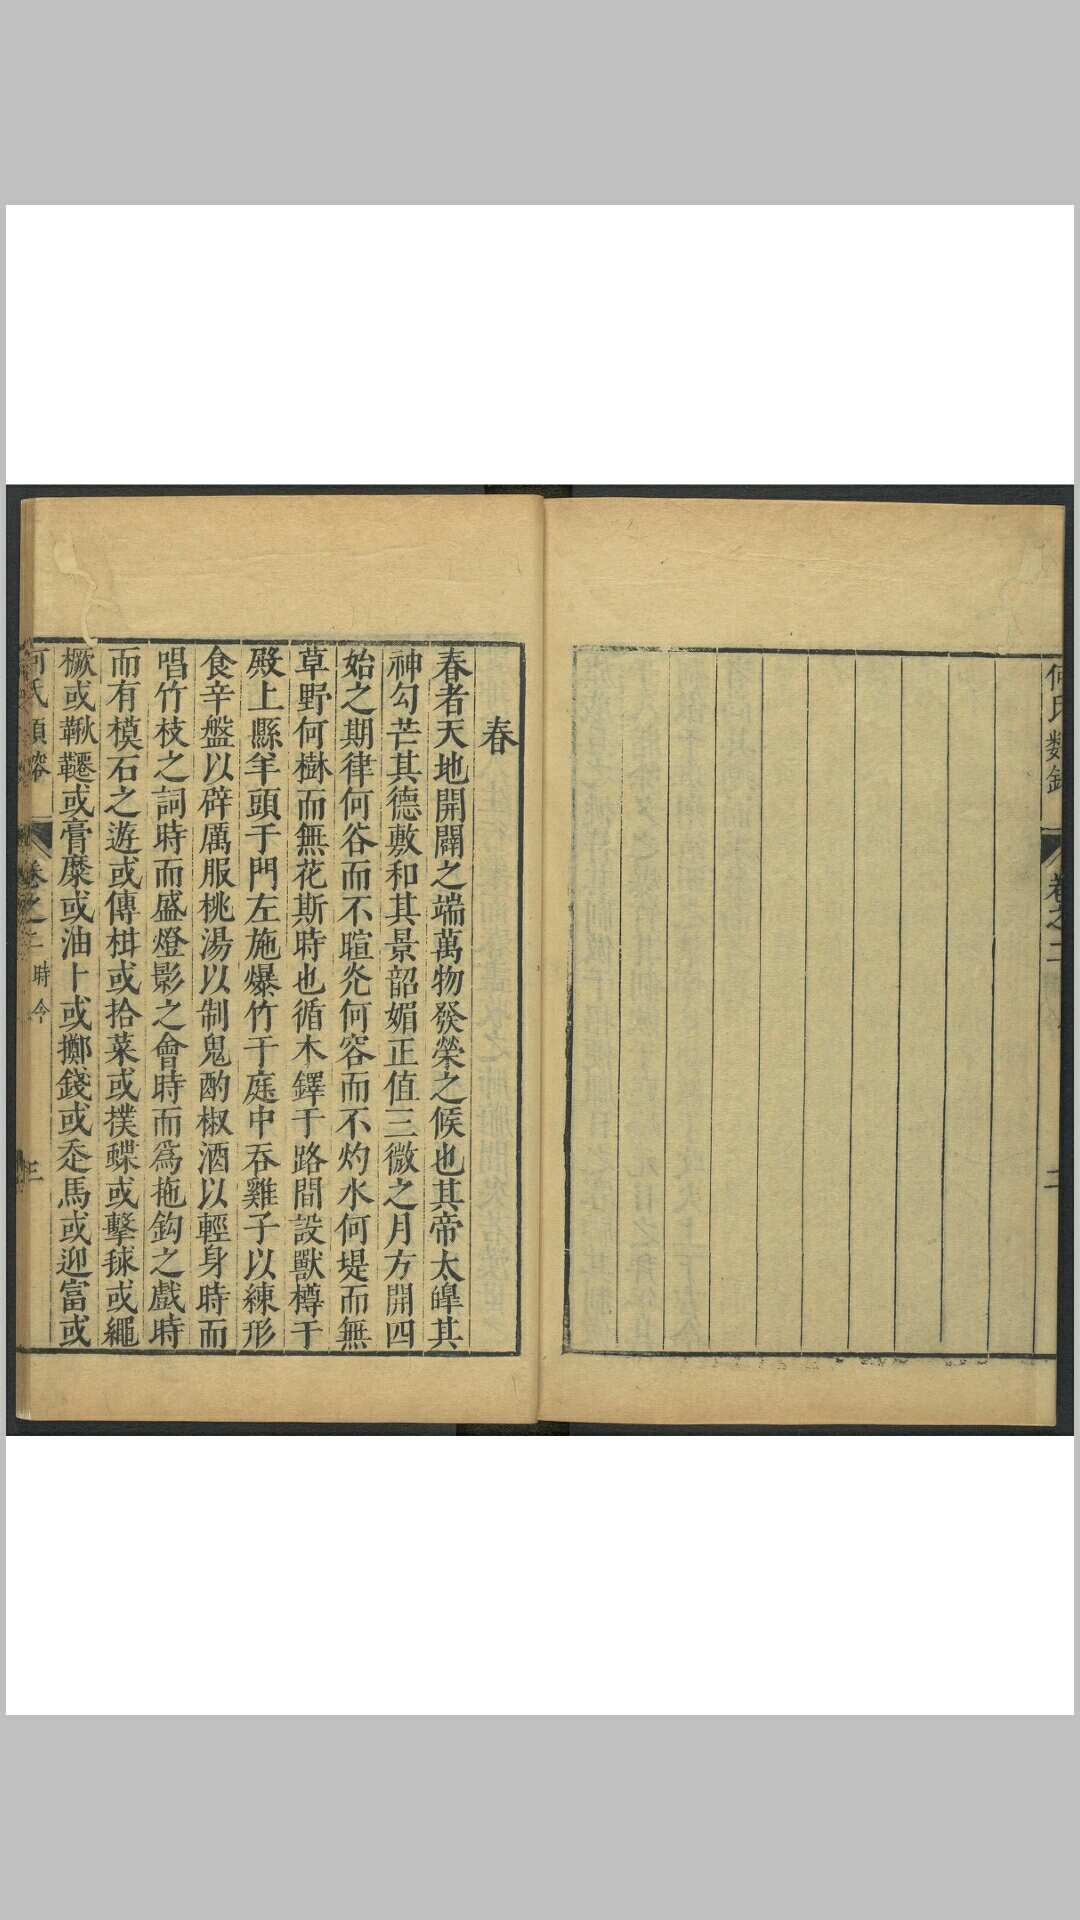 何氏類鎔 卷之二 時令 二
春
春者天地開闢之端萬物發榮之候也其帝太皥其
神勾芒其德敷和其景韶媚正值三微之月方開四
始之期律何谷而不暄灮何容而不灼水何堤而無
草野何樹而無花斯時也循木鐸于路間設獸樽于
殿上縣羊頭于門左施爆竹于庭中吞雞子以練形
食辛盤以辟厲服桃湯以制鬼酌椒酒以輕身時而
唱竹枝之詞時而盛燈影之會時而爲拖鈎之戲時
而有模石之遊或傳柑或拾菜或撲蝶或擊毬或繩
橛或鞦韆或膏糜或油卜或擲錢或走馬或迎富或
何氏類鎔 卷之二 時令 三